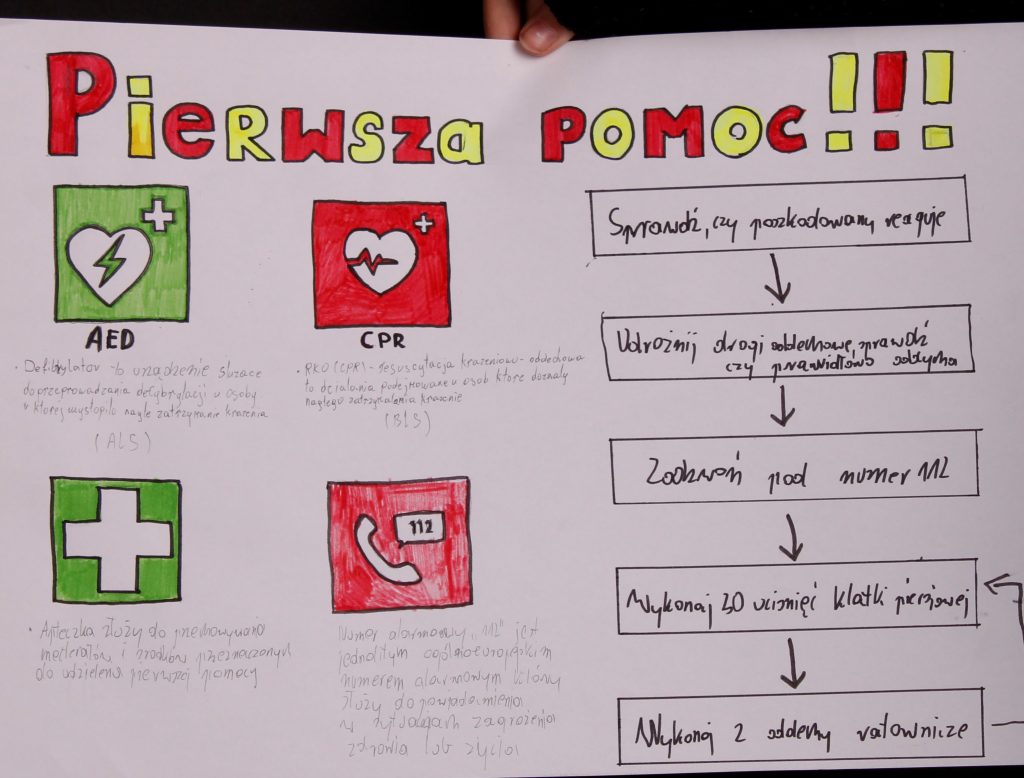 Pierwsza pomoc!!!
AED
Defibrylator to urządzenie służace
do przeprowadzania defybrylacji u osoby
u której wystopiło nagłe zatrzymanie krazenia
(ALS)
CPR
RKO (CPR) - resuscytacja krazeniowo-oddechowa
to działania podejmowane u osob które doznały
nagłego zatrzymania krazenie
(BLS)
Apteczka służy do przechowywania
materiałów i środków przeznaczonych
do udzielenia pierwszej pomocy
112
Numer alarmowy „112" jest
jednolitym ogólnoeuropejskim
numerem alarmowym który
służy do powiadamienia
w sytuacjach zagrożenia
zdrowia lub życia
Sprawdź, czy poszkodowany reaguje
Udrożnij drogi oddechowe, sprawdź
czy prawidłowo oddycha
Zadzwoń pod numer 112
Wykonaj 30 uciśnięć klatki piersiowej
Wykonaj 2 oddechy ratownicze